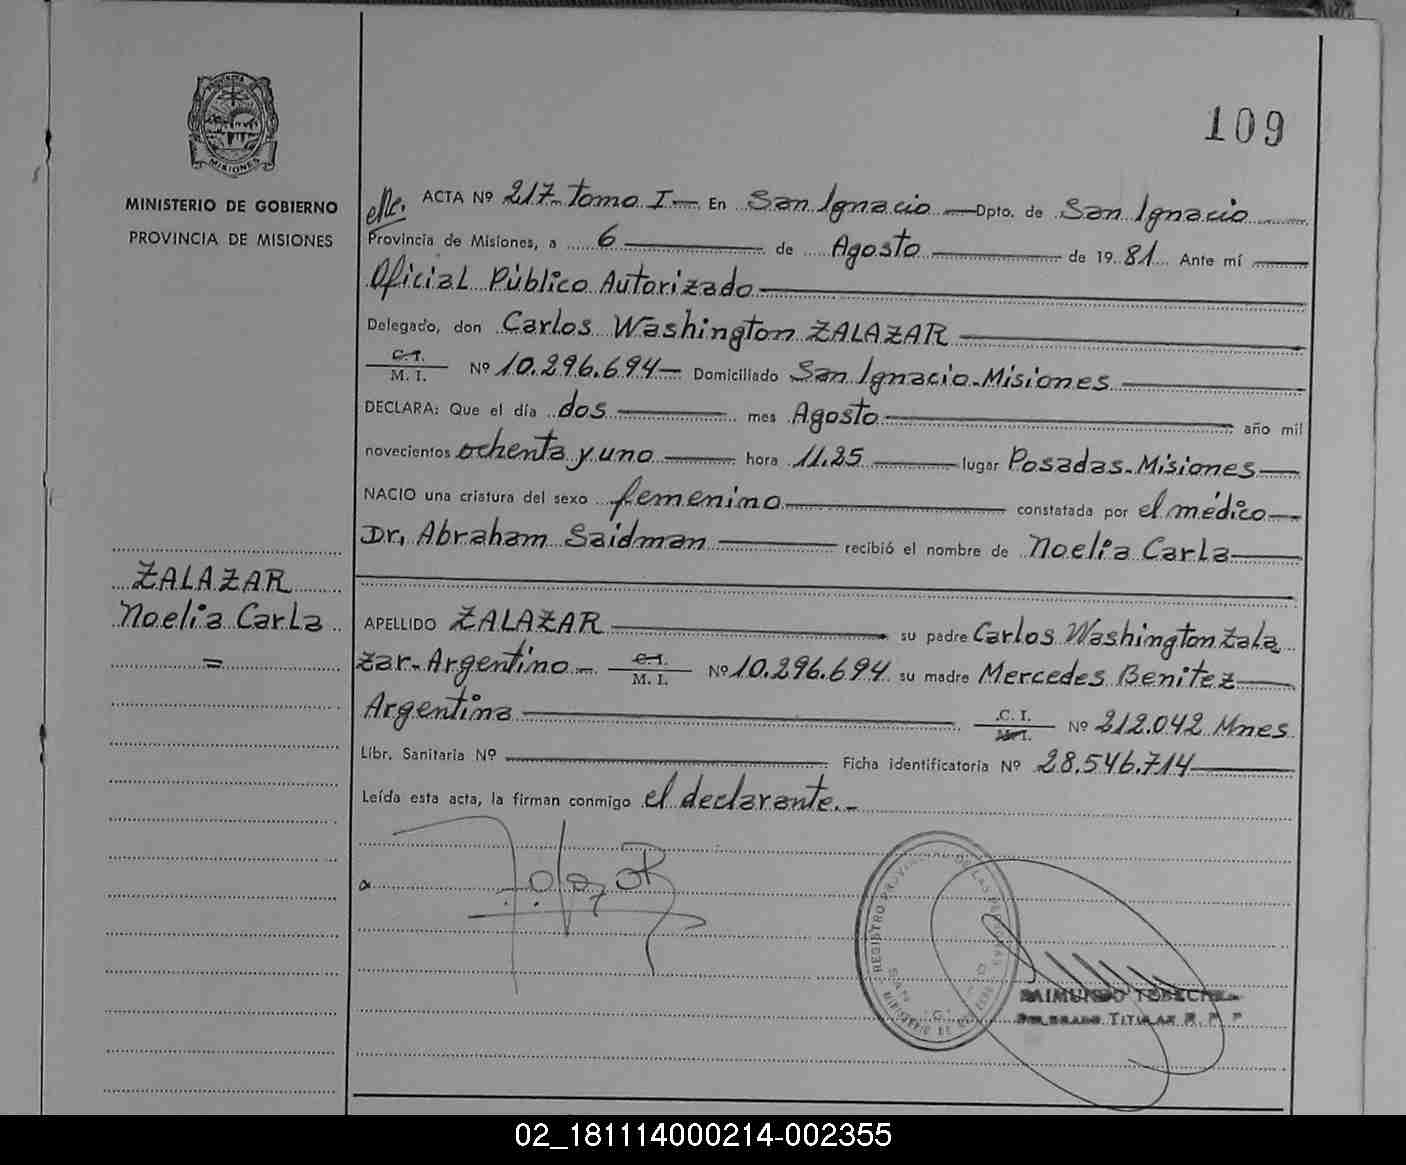 109
MINISTERIO DE GOBIERNO
PROVINCIA DE MISIONES
ACTA Nº 217- Tomo I- En San Ignacio - Dpto. de San Ignacio
Provincia de Misiones, a 6 de Agosto de 1981 Ante mí
Oficial Público Autorizado
Delegado, don Carlos Washington ZALAZAR
C.I.
M. I. Nº 10.296.694- Domiciliado San Ignacio-Misiones
DECLARA: Que el día dos mes Agosto año mil
novecientos ochenta y uno hora 11.25 lugar Posadas-Misiones
NACIO una criatura del sexo femenino constatada por el médico
Dr. Abraham Saidman recibió el nombre de Noelia Carla
ZALAZAR
Noelia Carla
=
APELLIDO ZALAZAR su padre Carlos Washington Zala
zar-Argentino- C.I.
M. I. Nº 10.296.694 su madre Mercedes Benitez
Argentina C. I.
M.I. Nº 212.042 Mnes
Libr. Sanitaria Nº Ficha identificatoria Nº 28.546.714
Leída esta acta, la firman conmigo el declarante.-
REGISTRO PROVINCIAL DE LAS PERSONAS
RAIMUNDO
DELEGADO TITULAR R. P. P
02_181114000214-002355